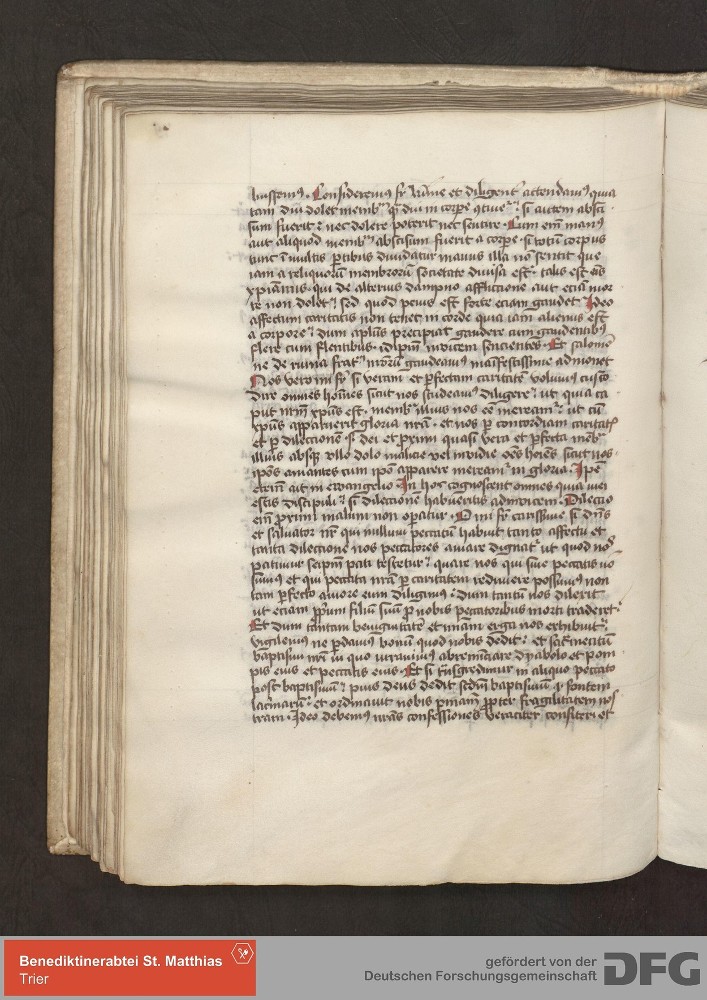 buissemus. Consideremus fr k̄rme et diligent attendamus quia
tam diu dolet membrum quam diu in corpore continetur si autem absci
sum fuerit nec dolere poterit nec sentire. Cum enim manus
aut aliquod membrum abscisum fuerit a corpore si totum corpus
tunc in multis partibus dividatur manus illa non sentit que
iam a reliquorum membrorum societate divisa est. talis est omnis
xpianus. qui de alterius dampno afflictione aut etiam mor
te non dolet sed quod peius est forte eciam gaudet Ideo
affectum caritatis non tenet in corde quia iam alienus est
a corpore dum aplus precipiat gaudere cum gaudentibus
flere cum flentibus. idipm invicem sencientes. Et salomō
ne de ruina fratrum nostrorum gaudeamus manifestissime admonet
Nos vero mi fr si veram et perfectam caritatem volumus custo
dire omnes homines sicut nos studeamus diligere ut quia ca
put nostrum xpus est. membra illius nos esse mereamur ut cum
xpus apparuerit gloria nostra. et nos per concordiam caritatis
et per dilectionem dei et proximi quasi vera et perfecta membra
illius absque ullo dolo malicie vel invidie omnes homines sicut nos
ipsos amantes cum ipso apparere mereamur in gloria. Ipse
etenim ait in ewangelio. In hoc cognoscent omnes quia mei
estis discipuli si dilectione habueritis adinvicem. Dilectio
enim proximi malum non operatur. O mi fr carissime si dns
et salvator nr qui nullum peccatum habuit tanto affectu et
tanta dilectione nos peccatores amare dignatur ut quod nos
patimur seipsum pati testetur quare nos qui sine peccatis non
sumus et qui peccata nostra per caritatem redimere possumus non
tam perfecto amore eum diligimus dum tantum nos dilexit
ut eciam proprium filium suum pro nobis peccatoribus morti traderet.
Et dum tantam benignitatem et misericordiam erga nos exhibuit
vigilemus ne perdamus bonum quod nobis dedit et sacramentum
baptismi nostri in quo iuravimus abrenunciare dyabolo et pom
pis eius et peccatis eius. Et si transgredimur in aliquo peccato
post baptismum pius deus dedit secundum baptismum fontem
lacrimarum et ordinavit nobis penitentiam propter fragilitatem nos
tram. Ideo debemus nostras confessiones veraciter confiteri et
Benediktinerabtei St. Matthias
Trier
gefördert von der
Deutschen Forschungsgemeinschaft
DFG